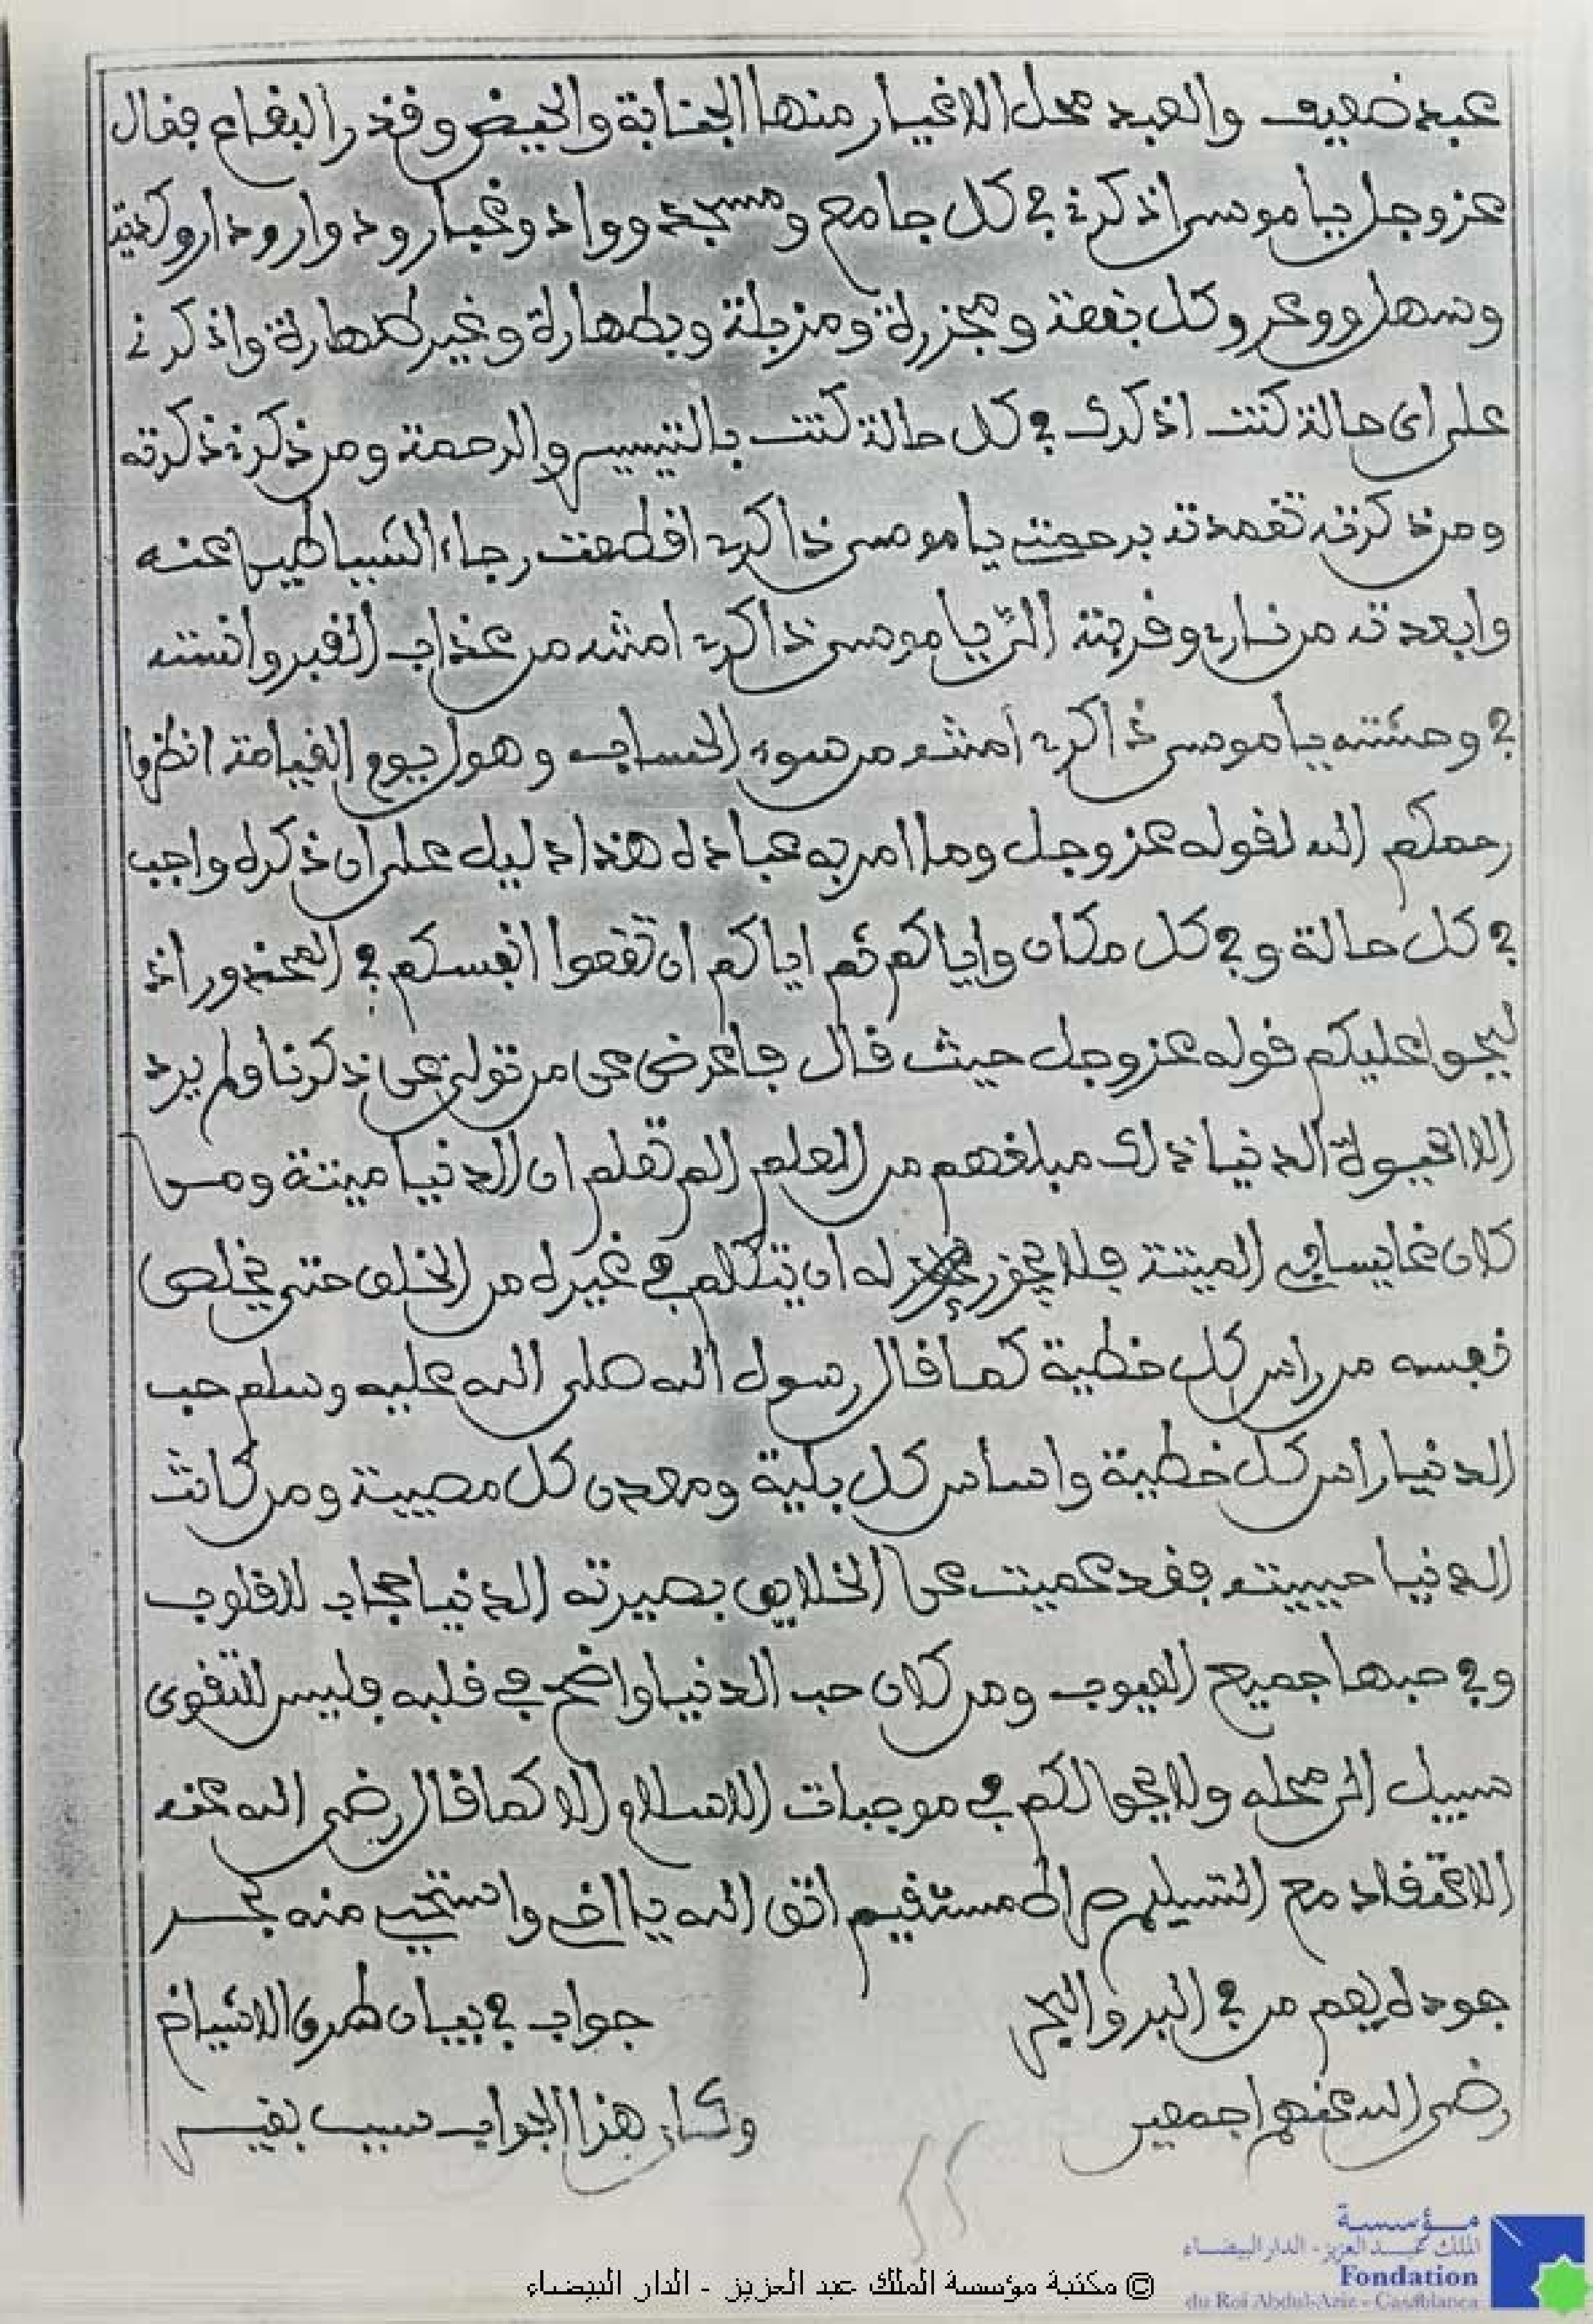 عبد ضعيف والعبد محل الاغيار منها الجنابة والحيض وقذر البقاع فقال
عز وجل يا موسى اذكرني في كل جامع ومسجد وواد وغبار ودوار ودار وكدية
وسهل ووعر وكل بقعة ومجزرة ومزبلة وبطهارة وغير طهارة واذكرني
على اي حالة كنت اذكرك في كل حالة كنت بالتيسير والرحمة ومن ذكرني ذكرته
ومن ذكرته تغمدته برحمتي يا موسى ذاكري اقطعت رجاء الشياطين عنه
وابعدته من ناري وقربته الي يا موسى ذاكري امنته من عذاب القبر وانسته
في وحشته يا موسى ذاكري امنته من سوء الحساب وهول يوم القيامة انظروا
رحمكم الله لقوله عز وجل وما امر به عباده هذا دليل على ان ذكره واجب
في كل حالة وفي كل مكان واياكم ثم اياكم ان تقعوا انفسكم في المحذور اذ
عليكم قوله عز وجل حيث قال فاعرض عن من تولى عن ذكرنا ولم يرد
الا الحيوة الدنيا ذلك مبلغهم من العلم الم تعلم ان الدنيا ميتة ومن
كان غايسا في الميتة فلا يجوز له ان يتكلم في غيره من الخلق حتى يخلص
نفسه من راس كل خطية كما قال رسول الله صلى الله عليه وسلم حب
الدنيا راس كل خطية واساس كل بلية ومعدن كل مصيبة ومن كانت
الدنيا حبيبته فقد عميت عن الخلايق بصيرته الدنيا حجاب للاقلوب
وفي حبها جميع العيوب ومن كان حب الدنيا واضح في قلبه فليس للتقوى
سبيل الى محله ولا لكم في موجبات الاسلام الا كما قال رضي الله عنه
الاعتقاد مع التسليم صراط مستقيم اتق الله يا اخي واستحي منه بحر
جوده يعم من في البر والبحر جواب في بيان طرق الاشياخ
رضي الله عنهم اجمعين وكان هذا الجواب سبب
55
مؤسسة
الملك عبد العزيز - الدار البيضاء
Fondation
du Roi Abdul-Aziz - Casablanca
© مكتبة مؤسسة الملك عبد العزيز - الدار البيضاء